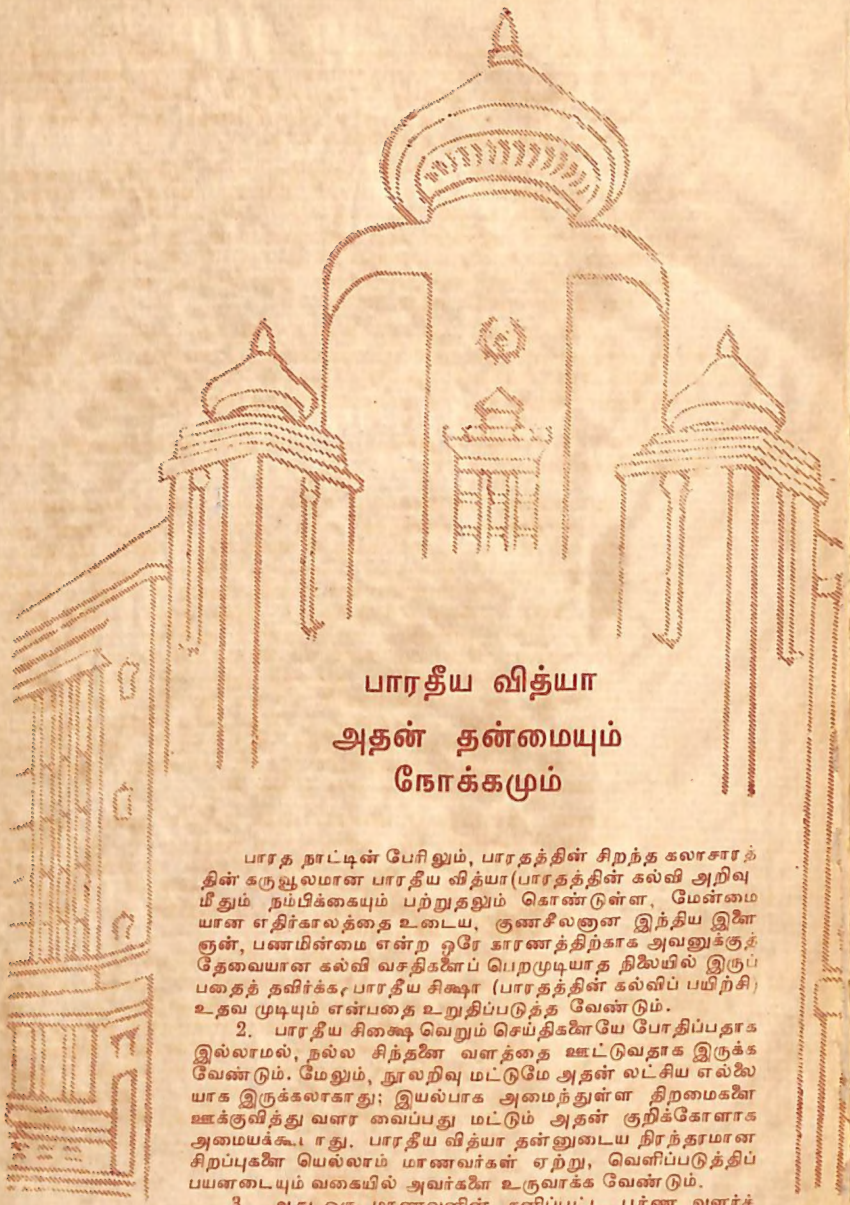 பாரதீய வித்யா
அதன் தன்மையும்
நோக்கமும்
பாரத நாட்டின் பேரிலும், பாரதத்தின் சிறந்த கலாசாரத்
தின் கருவூலமான பாரதீய வித்யா(பாரதத்தின் கல்வி அறிவு
மீதும் நம்பிக்கையும் பற்றுதலும் கொண்டுள்ள, மேன்மை
யான எதிர்காலத்தை உடைய, குணசீலனான இந்திய இளை
ஞன், பணமின்மை என்ற ஒரே காரணத்திற்காக அவனுக்குத்
தேவையான கல்வி வசதிகளைப் பெறமுடியாத நிலையில் இருப்
பதைத் தவிர்க்க, பாரதீய சிக்ஷா (பாரதத்தின் கல்விப் பயிற்சி)
உதவ முடியும் என்பதை உறுதிப்படுத்த வேண்டும்.
2. பாரதீய சிக்ஷை வெறும் செய்திகளையே போதிப்பதாக
இல்லாமல், நல்ல சிந்தனை வளத்தை ஊட்டுவதாக இருக்க
வேண்டும். மேலும், நூலறிவு மட்டுமே அதன் லட்சிய எல்லை
யாக இருக்கலாகாது; இயல்பாக அமைந்துள்ள திறமைகளை
ஊக்குவித்து வளர வைப்பது மட்டும் அதன் குறிக்கோளாக
அமையக்கூடாது. பாரதீய வித்யா தன்னுடைய நிரந்தரமான
சிறப்புகளை யெல்லாம் மாணவர்கள் ஏற்று, வெளிப்படுத்திப்
பயனடையும் வகையில் அவர்களை உருவாக்க வேண்டும்.